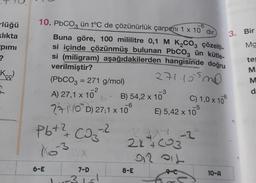 lüğü
lıkta
pımı
?
10. PbCO₃ ün t°C de çözünürlük çarpımı 1 x 10⁻⁶ dır.
Buna göre, 100 mililitre 0,1 M K₂CO₃ çözelti-
si içinde çözünmüş bulunan PbCO₃ ün kütle-
si (miligram) aşağıdakilerden hangisinde doğru
verilmiştir?
(PbCO₃ = 271 g/mol)
A) 27,1 x 10⁻² B) 54,2 x 10⁻³ C) 1,0 x 10⁻⁶
D) 27,1 x 10⁻⁶ E) 5,42 x 10⁻⁵
Pb⁺² CO₃⁻²
10⁻³
6-E 7-D 8-E 10-A
3. Bir
Mg
ter
M
M
d